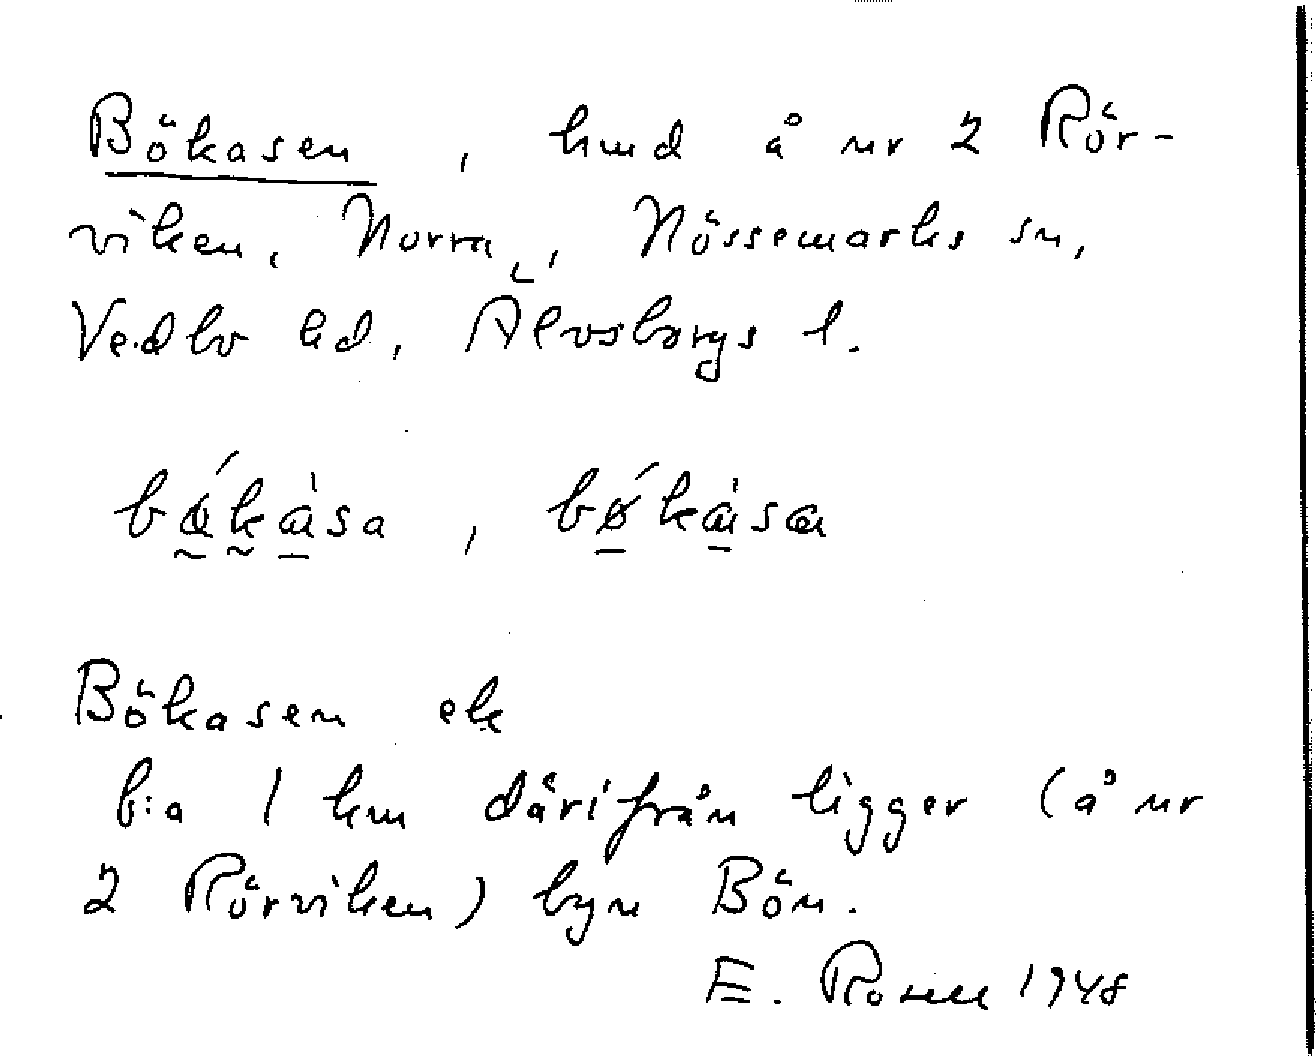 Bökasen, hmd å nr 2 Rör-
viken, Norra, Nössemarks sn,
Vedbo hd, Älvsborgs l.
bøkàsa, bǿkàsa
Bökasen ek
b:a 1 km därifrån ligger (å nr
2 Rörviken) byn Bön.
E. Rosell 1948